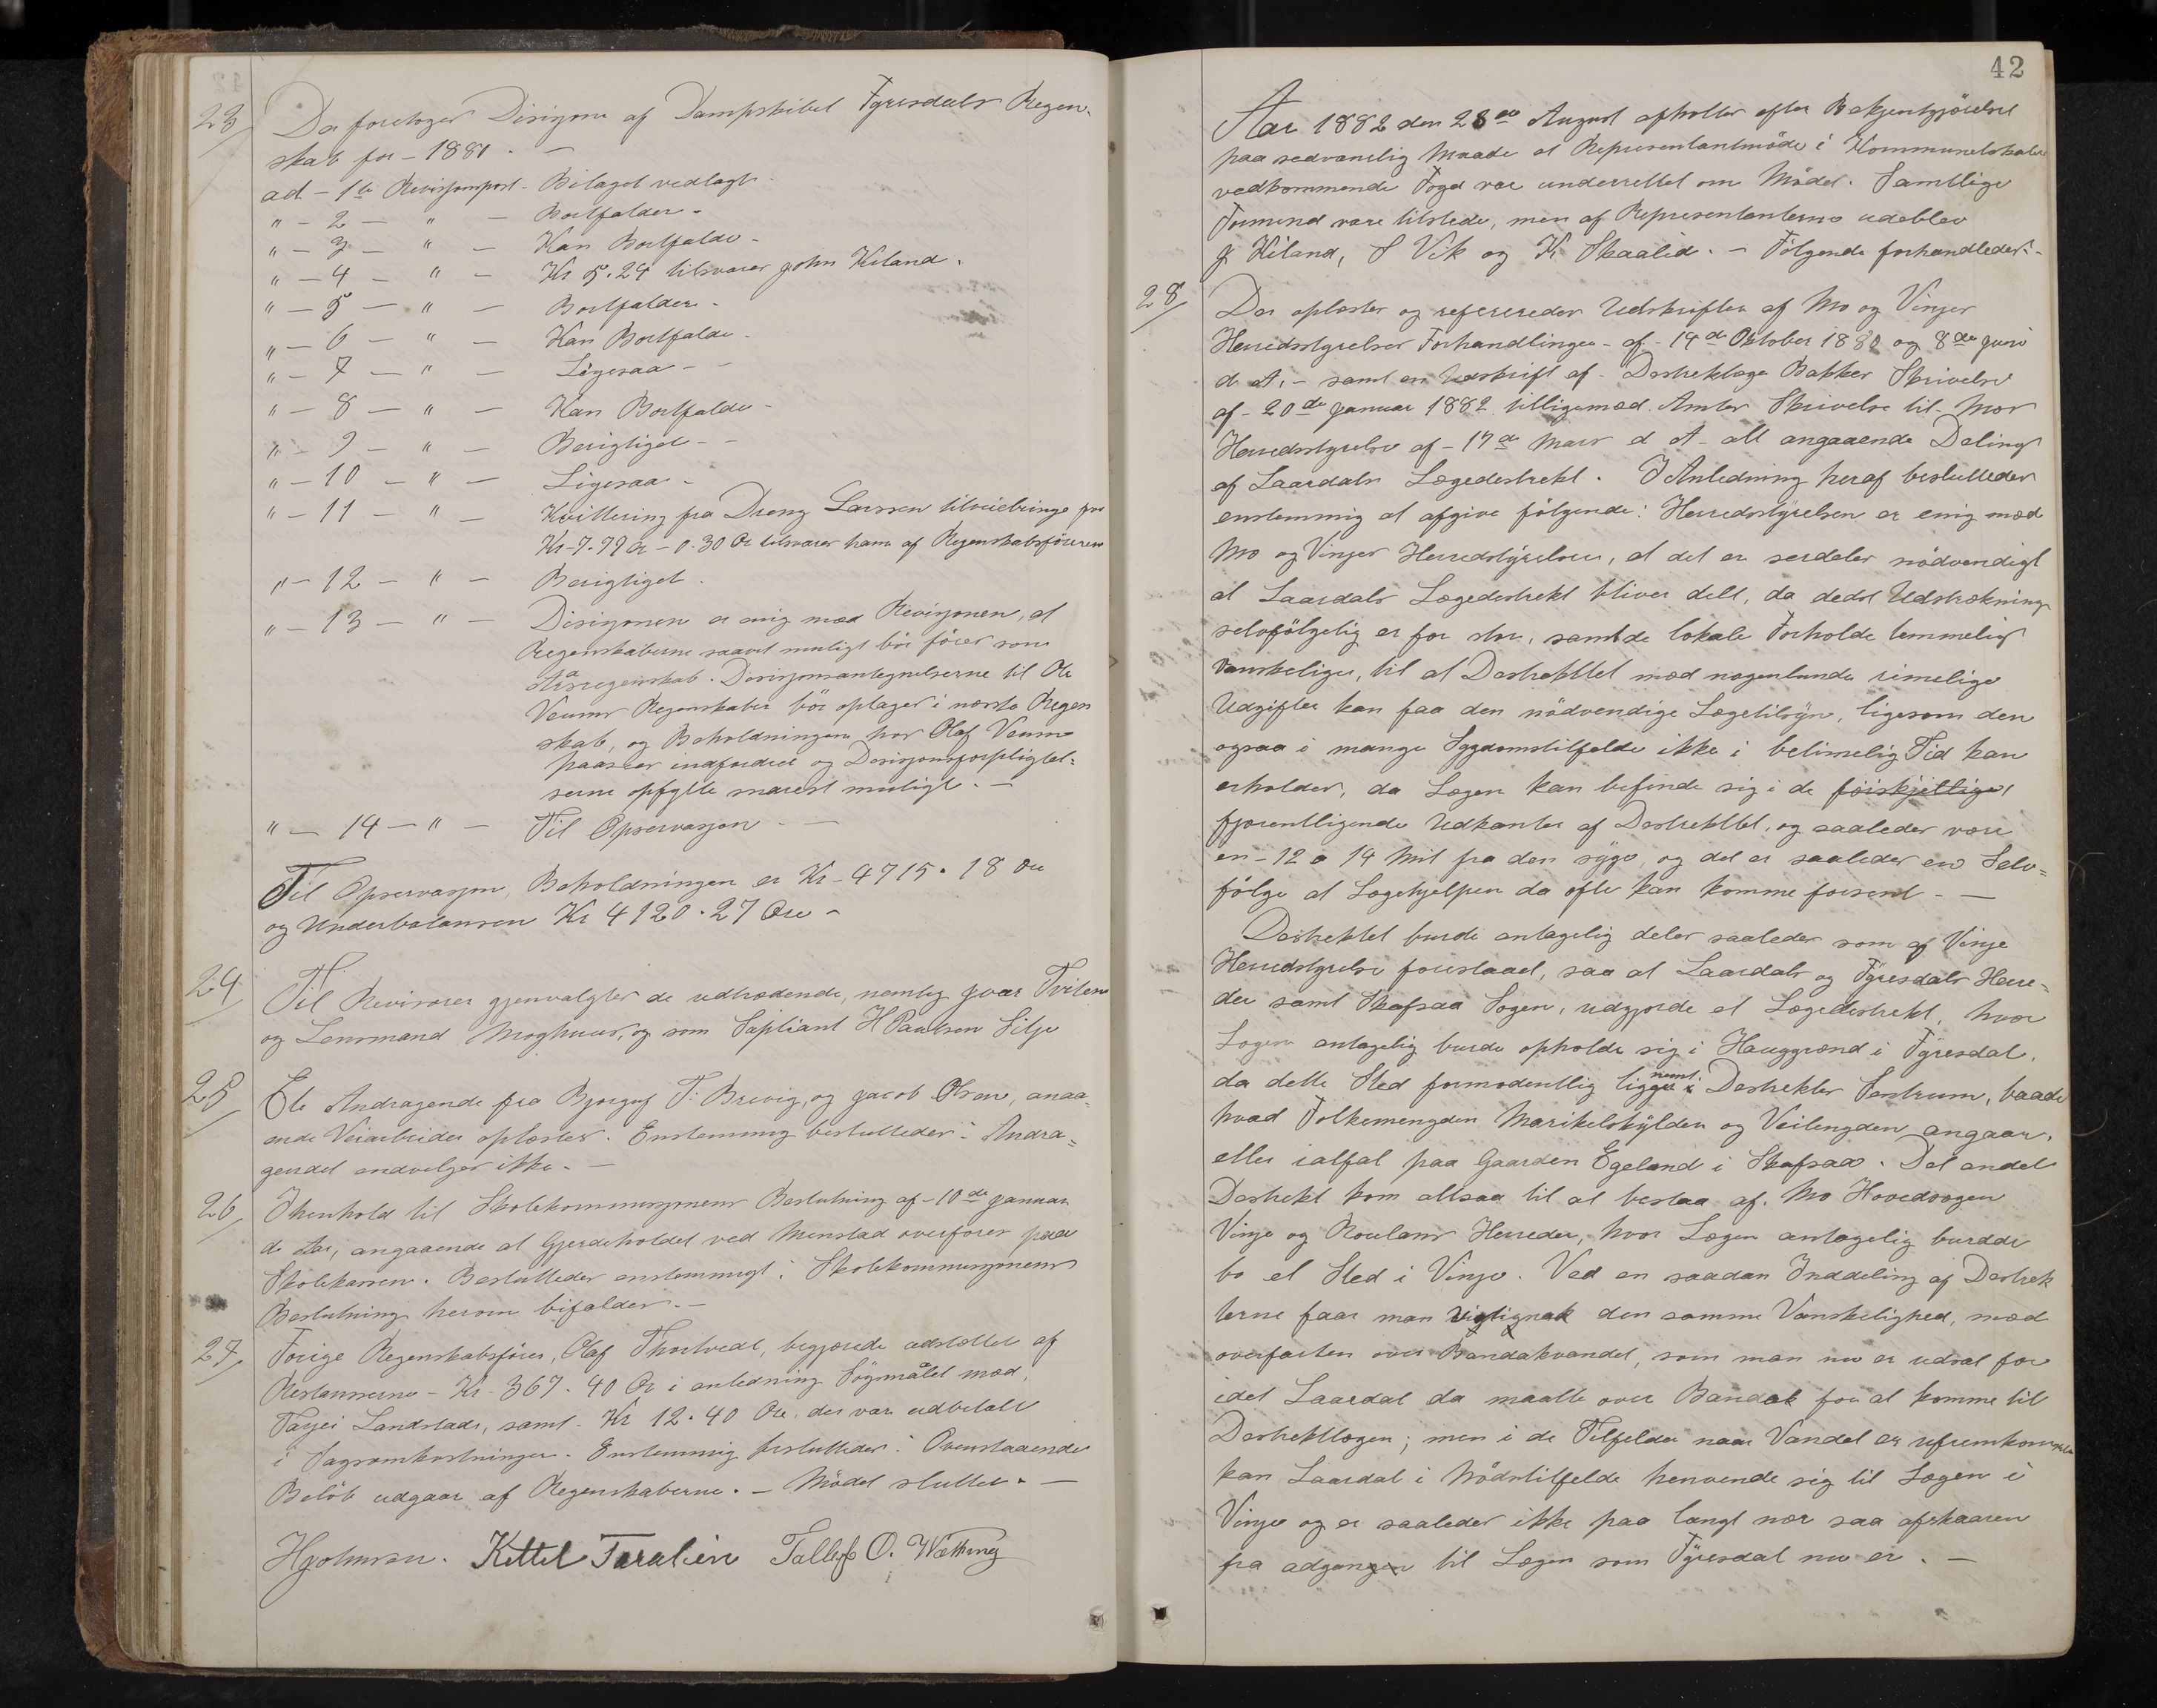 23/ Der foretoges Desisjon af Dampskibet Fyresdals Regen-
skab for - 1881. -
ad - 1te Revisjonspost - Bilaget vedlagt.
" - 2 - " - Bortfalder -
" - 3 - " - Kan Bortfalde -
" - 4 - " - Kr 5.24 tilsvarer John Kiland.
" - 5 - " - Bortfalder -
" - 6 - " - Kan Bortfalde -
" - 7 - " - Ligesaa - -
" - 8 - " - Kan Bortfalde -
" - 9 - " - Berigtiget - -
" - 10 - " - Ligesaa -
" - 11 - " - Kvittering fra Dreng Larssen tilveiebringes for
Kr - 7.79 Ør - 0.30 Ør tilsvarer ham af Regenskabsföreren
" - 12 - " - Berigtiget.
" - 13 - " - Desisjonen er enig med Revisjonen, at
Regenskaberne saavit muligt bör förer som
Årsregenskab. Desisjonsantegnelserne til Ole
Veums Regenskaber bör optager i næste Regen
skab, og Beholdningen hos Olaf Veum
paaser indfordret og Desisjonsforpligtel=
serne opfylte snarest muligt. -
" - 14 - " - Til Opservasjon - -
Til Opservasjon, Beholdningen er Kr - 4715.18 Øre
og Underbalansen Kr 4120.27 Øre -
24/ Til Revisorer gjenvalgtes de udtrædende, nemlig Ivar Tviten
og Lensmand Moghuus, og som Supliant H Paulsen Silje
25/ Ete Andragende fra Bjorguf T. Brevig, og Jacob Olsen, anaa-
ende Veiarbeider oplæstes. Enstemmig besluttedes: Andra=
gendet indvilges ikke. -
26/ I henhold til Skolekommisjonens Beslutning af - 10de Januar
ds Aar, angaaende at Gjerdeholdet ved Menstad overföres paa
Skolekassen. Besluttedes enstemmigt: Skolekommisjonens
Beslutning herom bifaldes. -
27/ Forige Regenskabsförer, Olaf Thortvedt, begjærede udslettet af
Restanserne - Kr - 367.40 Ør i anledning Sögsmålet mod
Tarjei Landstads, samt - Kr 12.40 Øre, der var udbetalt
i Sagsomkostninger. Enstemmig besluttedes: Ovenstaaende
Belöb udgaar af Regenskaberne. - Mödet sluttet. -
Hjolmsen. Kittel Taralien Tallef O. Wætting
42
Aar 1882 den 28de August afholtes efter Bekjentgjörelse
paa sedvanelig Maade et Representantmöde i Kommunelokalet
vedkommende Foged var underrettet om Mödet. Samtlige
Formend vare tilstede, men af Representanterne udeblev
G Kiland, S Vik og K. Skaalid. - Fölgende forhandledes: -
28/ Der oplæstes og refereredes Udskrifter af Mo og Vinjes
Herredsstyrelser Forhandlinger - af - 14de Oktober 1880 og 8de Juni
d A. - samt en Udskrift af - Destrektlæge Bakkes Skrivelse
af - 20de Januar 1882 tilligemed Amtes Skrivelse til - Mos
Herredsstyrelse af - 17de Mars d A - alt angaaende Deling
af Laardals Lægedestrekt. I Anledning heraf besluttedes
enstemmig at afgive fölgende: Herredsstyrelsen er enig med
Mo og Vinjes Herredsstyrelser, at det er serdeles nödvendigt
at Laardals Lægedestrekt bliver delt, da dedst Udstrækning
selvfölgelig er for stor, samt de lokale Forholde temmelig
vanskelige, til at Destrektet med nogenlunde rimelige
Udgifter kan faa den nödvendige Lægetilsyn, ligesom den
ogsaa i mange Sygdomstilfelde ikke i betimelig Tid kan
erholdes, da Lægen kan befinde sig i de forskjellige
fjerentligende Udkanter af Destrektet, og saaledes være
en - 12 a 14 Mil fra den syge, og det er saaledes en Selv=
fölge at Lægehjelpen da ofte kan komme forsent - -
Destrektet burde antagelig deles saaledes som af Vinje
Herredstyrelse foreslaaet, saa at Laardals og Fyresdals Herre=
der samt Skafsaa Sogen, udgjorde et Lægedestrekt, hvor
Lægen antagelig burde opholde sig i Hauggrend i Fyresdal,
da dette Sted formodentlig ligger nemt i Destrektes Sentrum, baade
hvad Folkemengden Marikelskylden og Veilengden angaar,
eller ialfal paa Gaarden Egeland i Skafsaa. Det andet
Destrekt kom altsaa til at bestaa af Mo Hovedsogen
Vinje og Roulans Herreder, hvor Lægen antagelig burdde
bo et Sted i Vinje. Ved en saadan Inddeling af Destrek
terne faar man vigtignok den samme Vanskelighed, med
overfarten over Bandaksvandet, som man nu er udsat for
idet Laardal da maatte over Bandak for at komme til
Destrektlægen; men i de Tilfelder naar Vandet er ufremkommelig
kan Laardal i Nödstilfelde henvende sig til Lægen i
Vinje og er saaledes ikke paa langt nær saa afskaaren
fra adgangen til Lægen som Fyresdal nu er. -